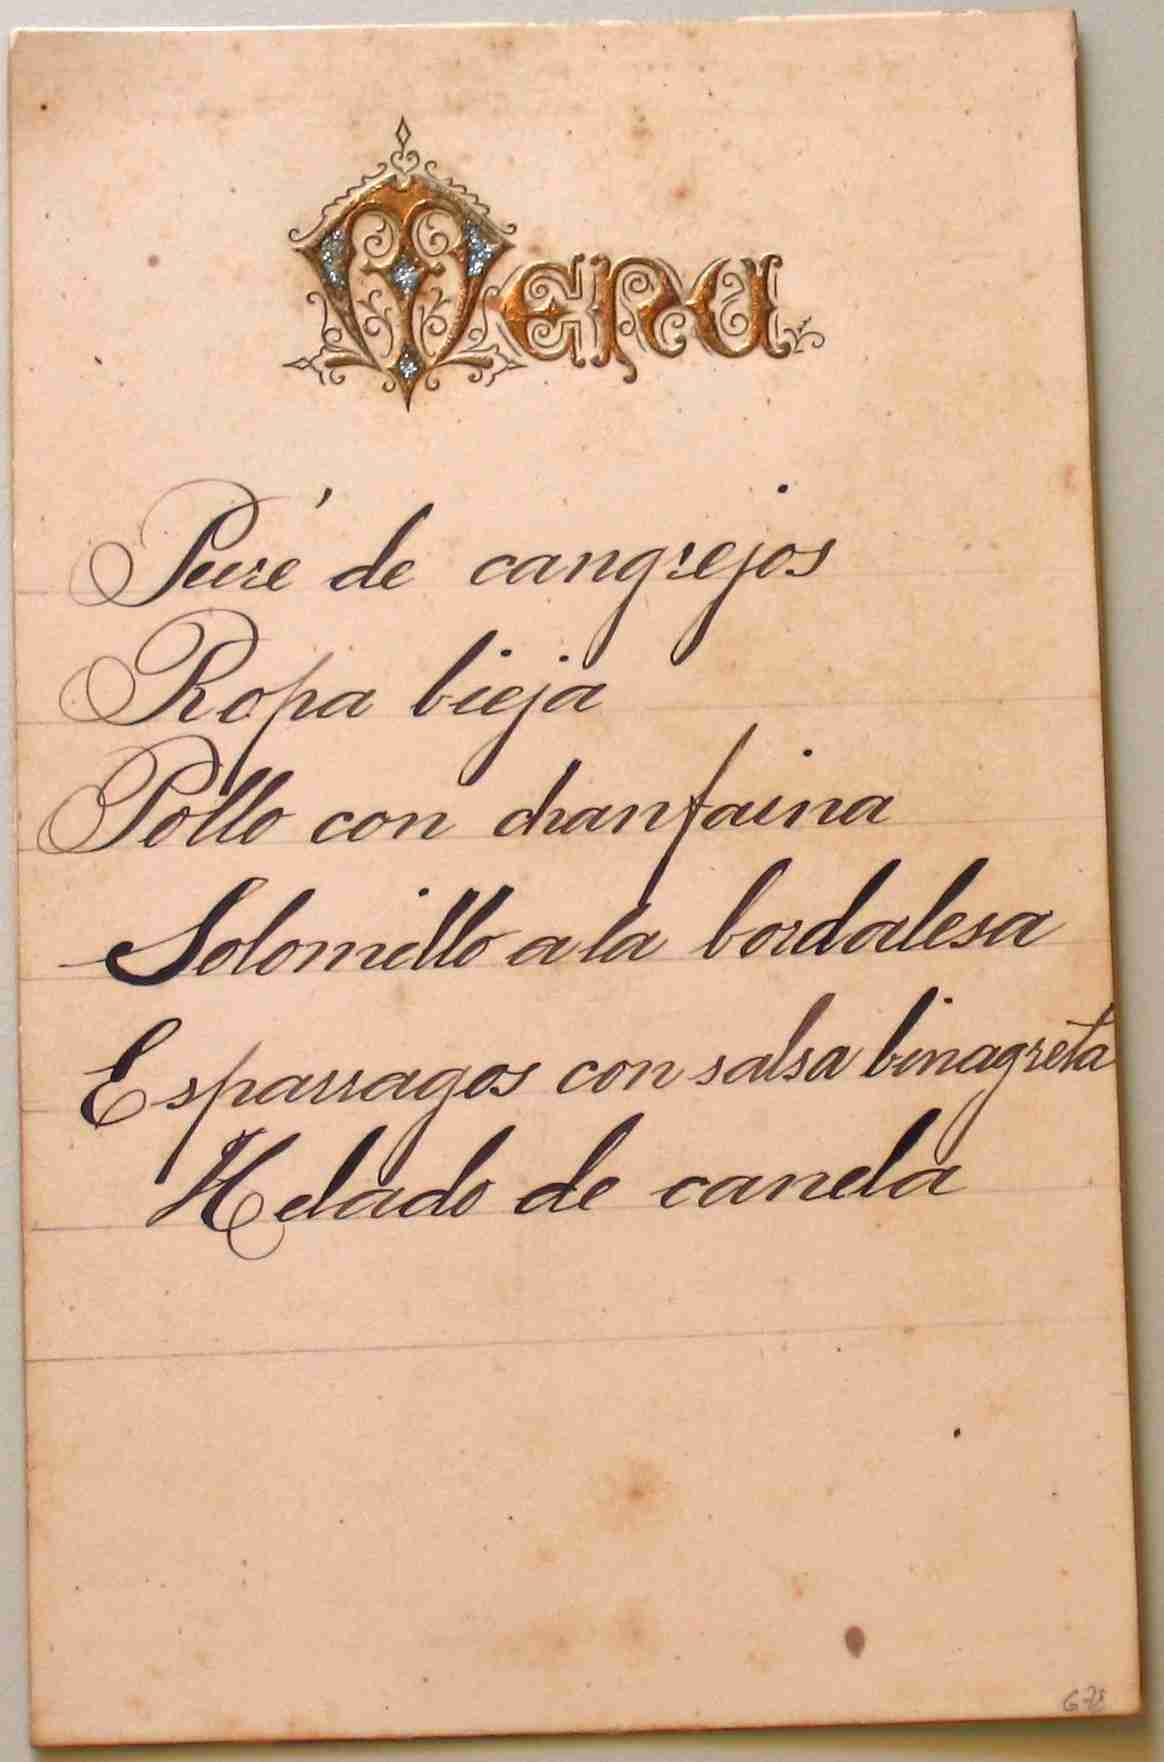 Menu
Puré de cangrejos
Ropa bieja
Pollo con chanfaina
Solomillo a la bordalesa
Esparragos con salsa binagreta
Helado de canela